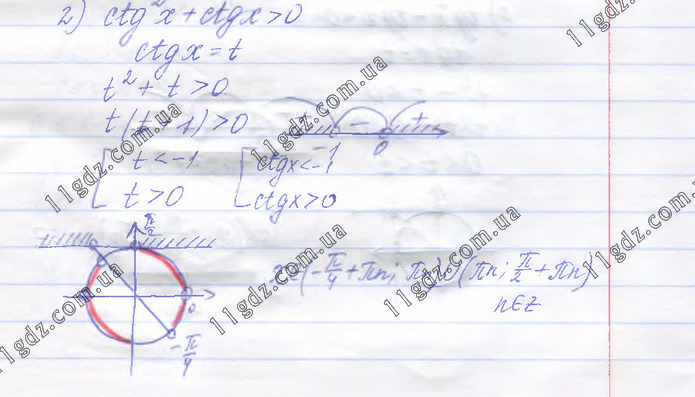 2) ctg²x + ctgx > 0
ctgx = t
t² + t > 0
t(t+1) > 0
+ - +
-1 0
t < -1
t > 0
ctgx < -1
ctgx > 0
π/2
0
-π/4
(-π/4 + πn; πn) ∪ (πn; π/2 + πn)
n∈Z
11gdz.com.ua
11gdz.com.ua
11gdz.com.ua
11gdz.com.ua
11gdz.com.ua
11gdz.com.ua
11gdz.com.ua
11gdz.com.ua